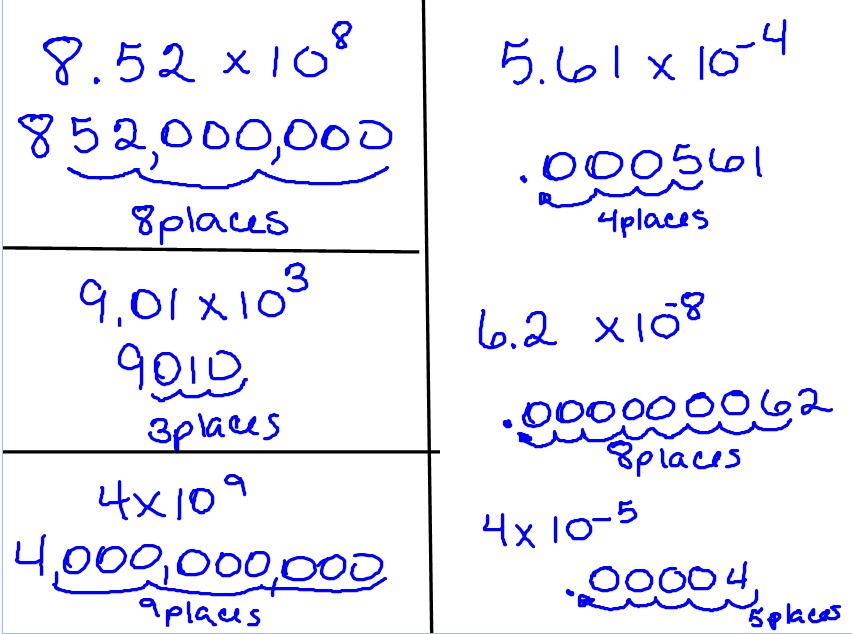 8.52 x 10⁸
852,000,000
8places
9.01 x 10³
9010
3places
4x10⁹
4,000,000,000
9places
5.61 x 10⁻⁴
.000561
4places
6.2 x10⁻⁸
.000000062
8places
4x 10⁻⁵
.00004
5places